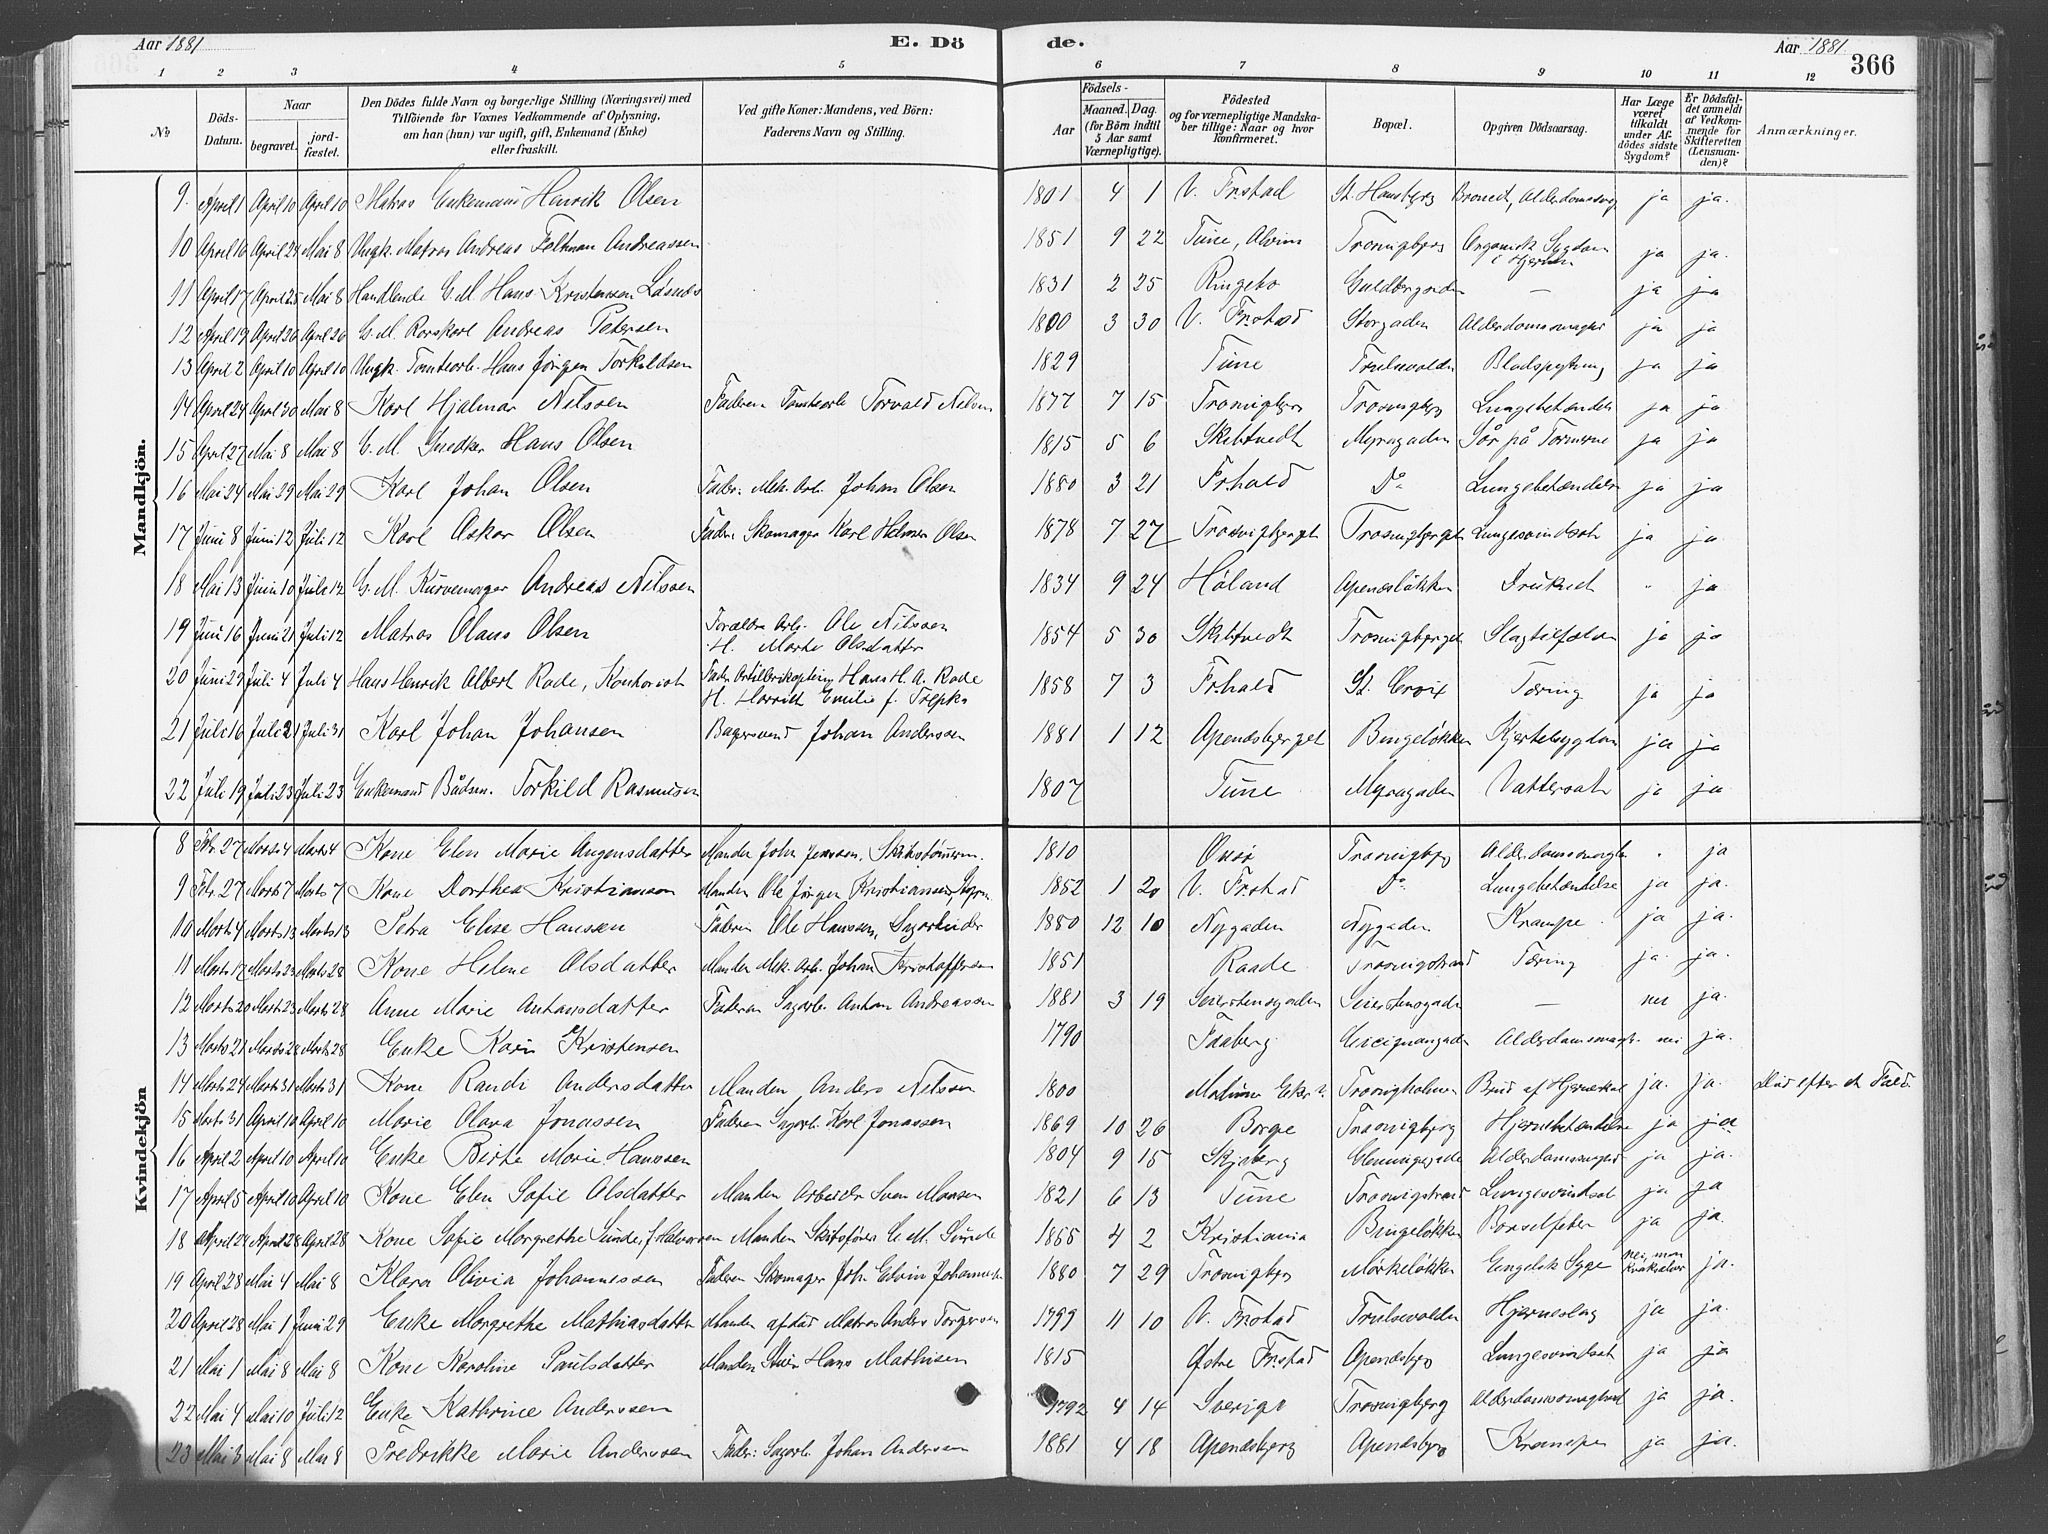 Aar 1881 E. Dö de. Aar 1881. 366
1 2 3 4 5 6 7 8 9 10 11 12
No Döds-Datum. Naar begravet. jord-fæstet. Den Dödes fulde Navn og borgerlige Stilling (Næringsvei) med Tilföiende for Voxnes Vedkommende af Oplysning, om han (hun) var ugift, gift, Enkemand (Enke) eller fraskilt. Ved gifte Koner: Mandens, ved Börn: Faderens Navn og Stilling. Födsels- Aar Maaned. Dag. (for Börn indtil 5 Aar samt Værnepligtige). Födested og for værnepligtige Mandskaber tillige: Naar og hvor konfirmeret. Bopæl. Opgiven Dödsaarsag. Har Læge været tilkaldt under Afdödes sidste Sygdom? Er Dödsfaldet anmeldt af Vedkommende for Skifteretten (Lensmanden)? Anmærkninger.
Mandkjön.
9. April 1 April 10 April 10 Matros Enkemand Henrik Olsen 1801 4 1 V. Frstad St. Hansbjerg ja ja.
10 April 16 April 24 Mai 8 Ungk. Matros Andreas Feltman Andreassen 1851 9 22 Tune, Alvim Trosvigbjerg Organisk Sygdom i Hjertet ja ja.
11 April 17 April 25 Mai 8 Handlende E. M. Hans Kristensen 1831 2 25 Ringebo — ja ja
12 April 19 April 26 April 26 G. M. Rorskarl Andreas Petersen 1800 3 30 V. Frstad Storgaden ja ja
13 April 2 April 10 April 10 Ungk. Tomtearb. Hans Jörgen Torkildsen 1829 Tune Trulsevolden Blodspytning ja ja
14 April 24 April 30 Mai 8 Karl Hjalmar Nilssen Faderen Tomtearb. Torvald Nilsen 1877 7 15 Trosvigbjerg Trosvigbjerg Lungebetændelse ja ja
15 April 27 Mai 8 Mai 8 E. M. Snedker Hans Olsen 1815 5 6 Skibtvedt Myragaden Sår på ja ja
16 Mai 24 Mai 29 Mai 29 Karl Johan Olsen Fader: Mek. Arb. Johan Olsen 1880 3 21 Frhald Do Lungebetændelse ja ja
17 Juni 8 Juni 12 Juli 12 Karl Oskar Olsen Fader: Skomager Karl Helmer Olsen 1878 7 27 Trosvigbjerget Trosvigbjerget Lungesvindsot ja ja
18 Mai 13 Juni 10 Juli 12 G. M. Kurvemager Andreas Nilssen 1834 9 24 Höland Apenesløkken Druknet " ja
19 Juni 16 Juni 21 Juli 12 Matros Olaus Olsen Forældre Arb. Ole Nilssen H. Marte Olsdatter 1854 5 30 Skibtvedt Trosvigbjerget Slagtilfælde ja ja
20 Juni 29 Juli 4 Juli 4 Hans Henrik Albert Rode, Kontorist Fader Artillerikaptein Hans H. A. Rode H. Emilie f. Trepka 1858 7 3 Frhald St. Croix Tæring ja ja
21 Juli 16 Juli 21 Juli 31 Karl Johan Johansen Bagersvend Johan Anderssen 1881 1 12 Apenesbjerget Bingeløkken Kjertelsygdom ja ja
22 Juli 19 Juli 23 Juli 23 Enkemand Bådsm. Torkild Rasmusen 1807 Tune Myragaden Vattersot ja ja
Kvindekjön
8 Febr. 27 Marts 4 Marts 4 Kone Elen Marie Augensdatter Manden John Jenssen, Skibstömerm. 1810 Onsö Trosvigbjerg " ja
9 Febr. 27 Marts 7 Marts 7 Kone Dorthea Kristianson Manden Ole Jörgen Kristiansen, 1852 1 20 V. Frstad Do Lungebetændelse ja ja.
10 Marts 4 Marts 13 Marts 13 Petra Elise Hanssen Faderen Ole Hanssen, Sagarbeider 1880 12 10 Nygaden Nygaden Krampe ja ja.
11 Marts 17 Marts 23 Marts 28 Kone Helene Olsdatter Manden Mek. Arb. Johan Kristoffersen 1851 Raade Trosvigstrand Tæring ja. ja.
12 Marts 20 Marts 23 Marts 28 Anne Marie Antonsdatter Faderen Sagarb. Anton Andreassen 1881 3 19 — nei ja.
13 Marts 21 Marts 28 Marts 28 Enke Karin Kristensen 1790 Faaberg nei ja.
14 Marts 24 Marts 31 Marts 31 Kone Randi Andersdatter Manden Anders Nilssen 1800 Trosvigholmen ja. ja. Död efter et Fald
15 Marts 31 April 10 April 10 Marie Olava Jonassen Faderen Sagarb. Karl Jonassen 1869 10 26 Borge Trosvigbjerg Hjernebetændelse ja ja
16 April 2 April 10 April 10 Enke Birte Marie Hanssen 1804 9 15 Skjeberg ja ja.
17 April 5 April 10 April 10 Kone Elen Sofie Olsdatter Manden Arbeider Sven Monsen 1821 6 13 Tune Trosvigstrand Lungesvindsot ja ja
18 April 24 April 28 April 28 Kone Sofie Margrethe Sunde, f. Halvorsen Manden Skibsförer C. M. Sunde 1855 4 2 Kristiania Bingeløkken Barselfeber ja ja.
19 April 28 Mai 4 Mai 8 Klara Olivia Johannessen Faderen Skomager Joh. Edvin Johannessen 1880 7 29 Trosvigbjerg Mørkeløkken Engelsk Syge nei, men Kvaksalver ja.
20 April 28 Mai 1 Juni 29 Enke Margrethe Mathiasdatter Manden afdød Matros Anders Torgersen 1799 11 10 V. Frstad Trulsevolden Hjerneslag ja ja.
21 Mai 1 Mai 8 Mai 8 Kone Karoline Paulsdatter Manden Hans Mathisen 1815 Østre Frstad Apenesbjerg Lungesvindsot ja ja
22 Mai 4 Mai 10 Juli 12 Enke Kathrine Anderssen 1792 4 14 Sverige Trosvigbjerg Alderdomssvaghed ja ja.
23 Mai 3 Mai 8 Mai 8 Fredrikke Marie Anderssen Fader: Sagarb. Johan Andersen 1881 4 18 Apenesbjerg Apenesbjerg Krampe ja ja.